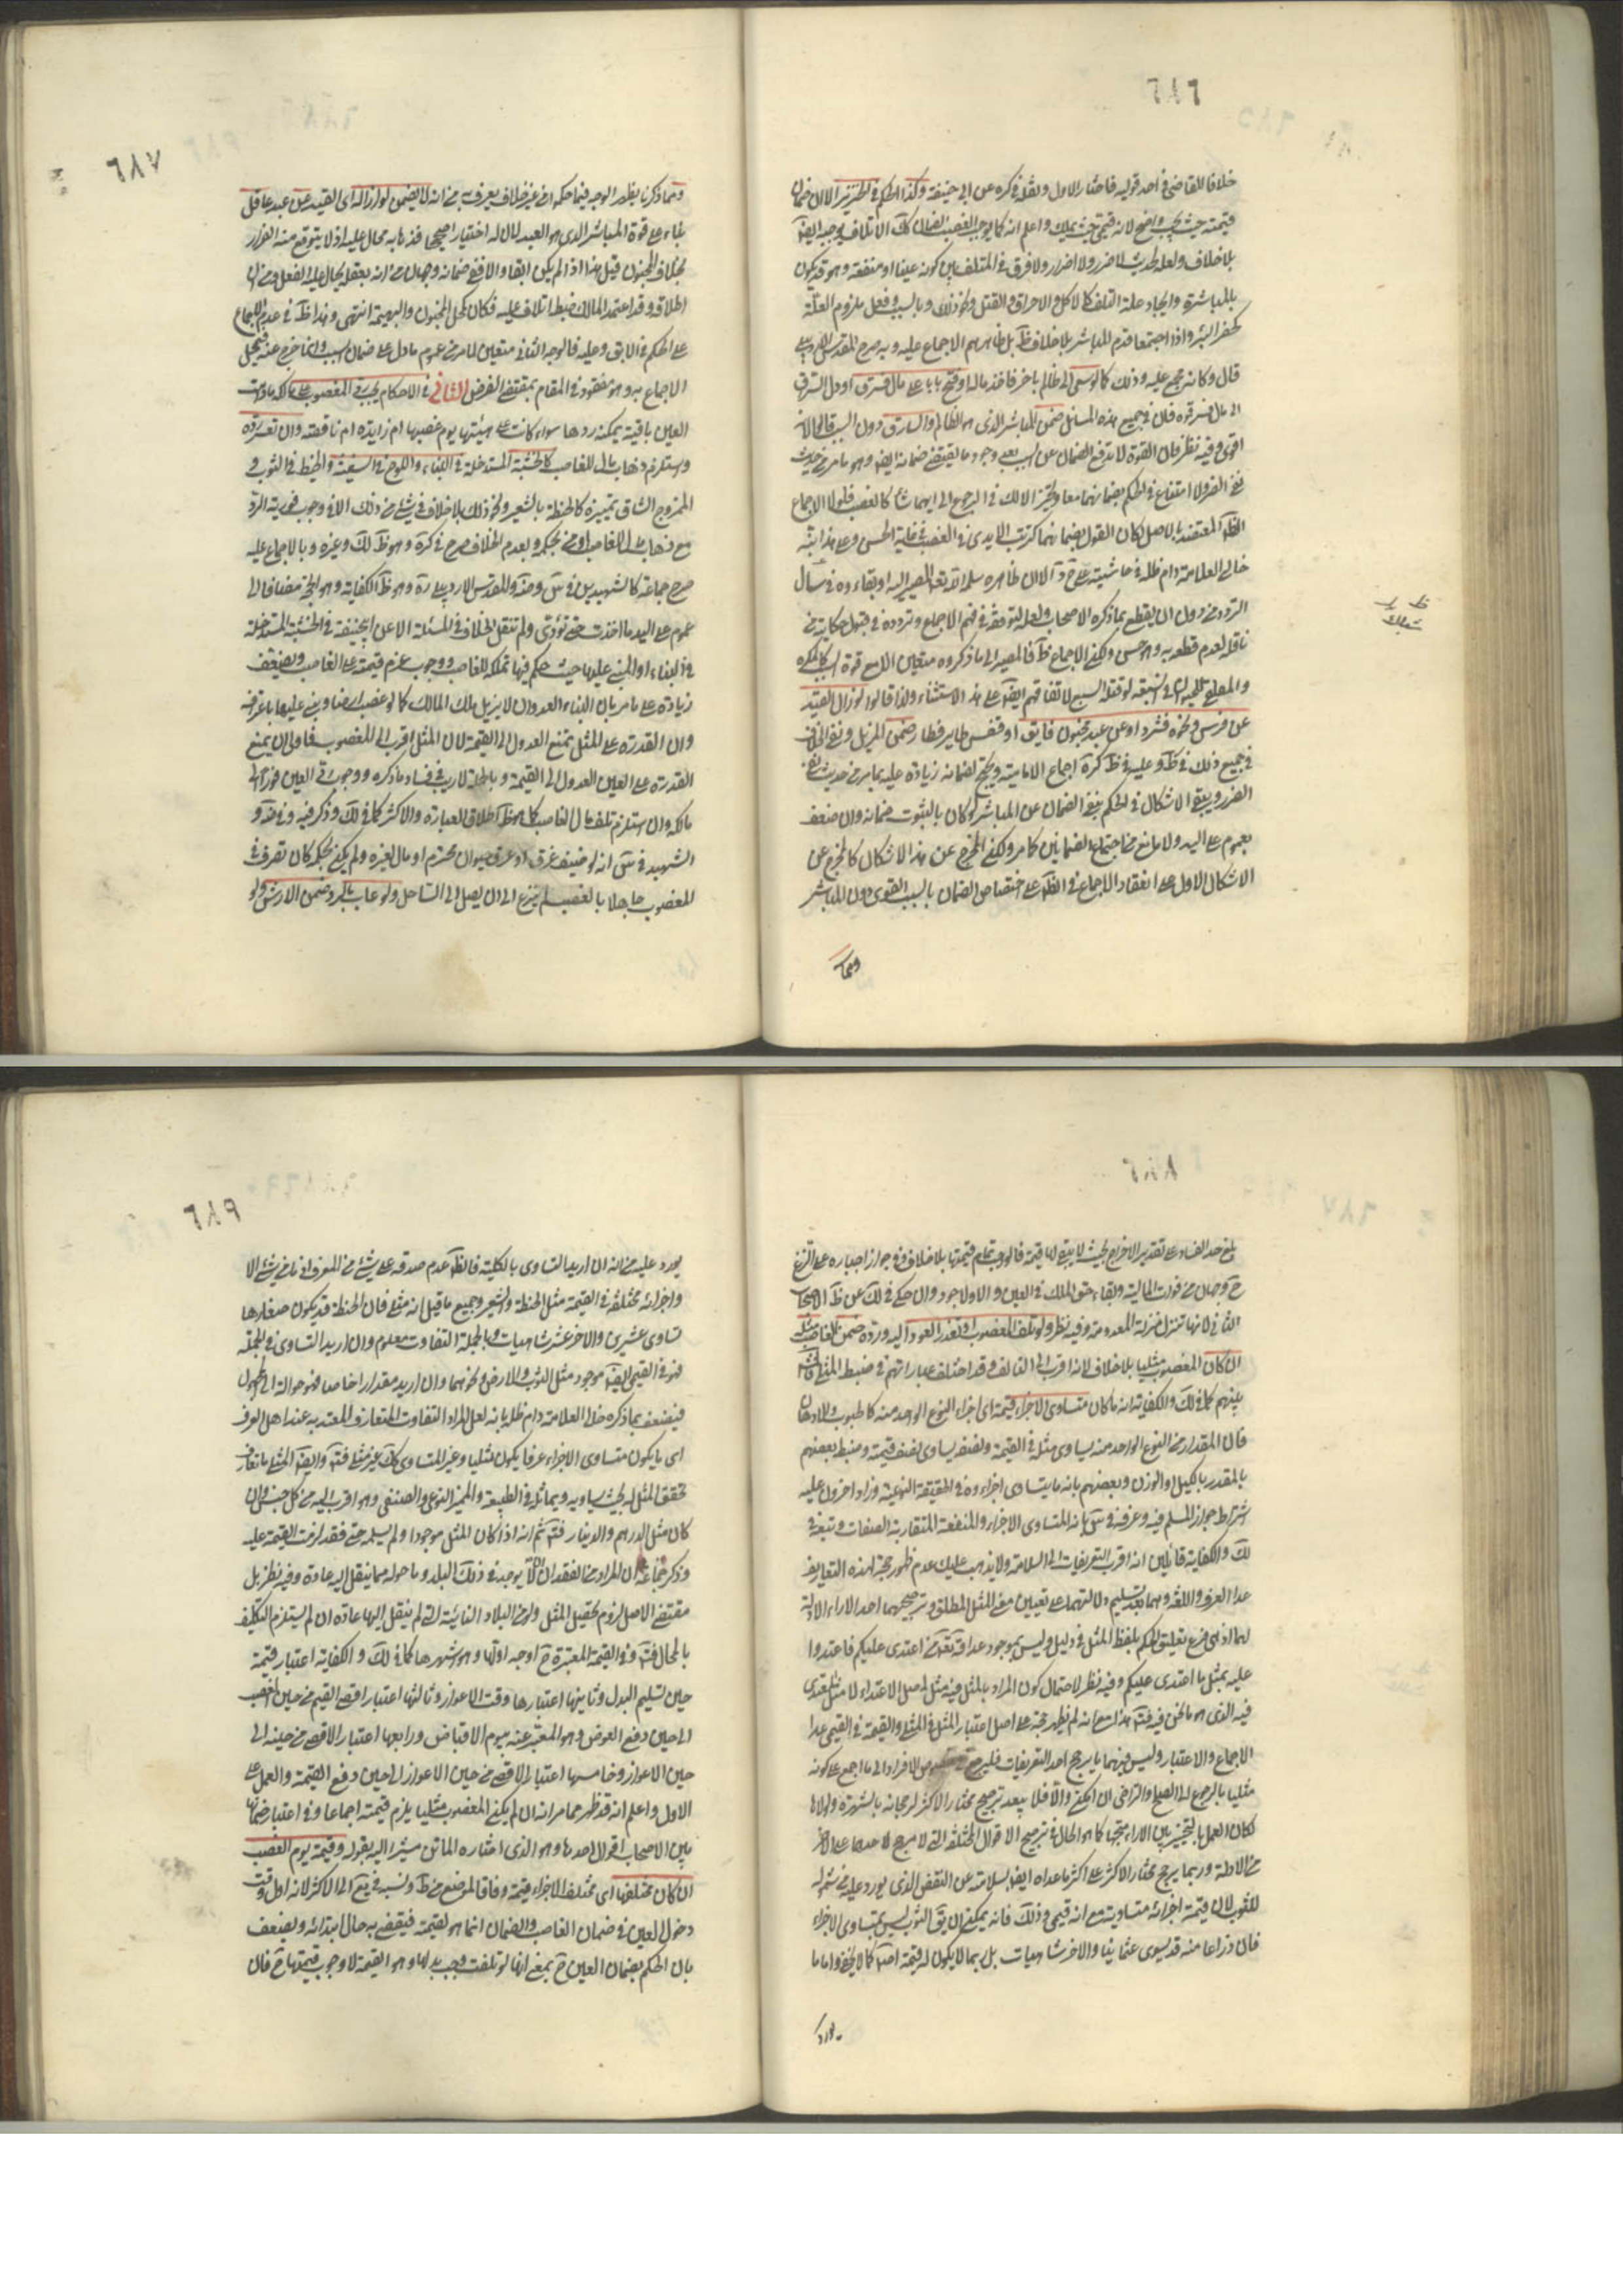 ٦٨٦
خلافا للقاضي في احد قوليه فاختار الاول ونقله في كره عن ابي حنيفة وكذا الحكم في الخنزير الا ان ضمان
قيمته حيث يجب واضح لانه قيمي حيث يملك واعلم انه كما يوجب الغصب الضمان كك الاتلاف يوجبه ايضا
بلا خلاف ولعله لحديث لا ضرر ولا اضرار ولا فرق في المتلف بين كونه عينا او منفعة وهو قد يكون
بالمباشرة وايجاد علة التلف كالاكل والاحراق والقتل ونحو ذلك وبالسبب وفعل ملزوم العلة
كحفر البئر واذا اجتمعا قدم المباشر بلا خلاف ظ بل ظاهرهم الاجماع عليه وبه صرح المقدس الاردبيلي
قال وكانه مجمع عليه وذلك كالو سعى الى ظالم باخر فاخذ ماله او فتح بابا على مال فسرق او دل السارق
الى مال فسرقوه فان في جميع هذه المسائل ضمن المباشر الذي هو الظالم والسارق دون السبب قالوا لانه
اقوى وفيه نظر فان القوة لا تدفع الضمان عن السبب بعد وجود ما يقتضي ضمانه ايضا وهو ما مر من حديث
نفي الضرر ولا امتناع في الحكم بضمانهما معا وتخير المالك في الرجوع الى ايهما شاء كالغصب فلولا الاجماع
الظ المعتضد بالاصل لكان القول بضمانهما كترتب الايدي في الغصب في غاية الحسن وعلى هذا نبه
خالي العلامة دام ظله في حاشيته على
التردد من دون ان يقطع بما ذكره الاصحاب ولعله لتوقفه في فهم الاجماع وتردده في قبول حكاية من
ناقله لعدم قطعه به وهو حسن ولكن الاجماع ظ فالمصير الى ما ذكروه متعين الا مع قوة السبب كالمكره
لاتفاقهم ايضا على هذا الاستثناء ولذا قالوا لو ازال القيد
عن فرس ونحوه فشرد او عن عبد مجنون فابق او قفص طاير فطار ضمن المزيل ونفي الخلاف
في جميع ذلك في ظ وعليه في ظ كرة اجماع الامامية ويحتج لضمانه زيادة عليه بما مر من حديث نفي
الضرر ويبقى الاشكال في الحكم بنفي الضمان عن المباشر لو كان بالثبوت ضمانه وان ضعف
بعموم على اليد ولا مانع من اجتماع الضمانين كما مر ولكن المخرج عن هذا الاشكال كالمخرج عن
الاشكال الاول على انعقاد الاجماع في الظ على اختصاص الضمان بالسبب القوى دون المباشر
ومما
٦٨٧
ومما ذكرنا يظهر الوجه فيما حكموا من غير خلاف يعرف به من انه لا يضمن لو ازاله اي القيد عن عبد عاقل
بناء على قوة المباشر الذي هو العبد لان له اختيارا صحيحا فذهابه محال عليه اذ لا يتوقع منه الفرار
بخلاف المجنون قيل هذا اذا لم يكن ابقا والا ففي ضمانه وجهان من انه بعقله يحال عليه الفعل ومن ان
اطلاقه وقد اعتمد المالك ضبطه اتلاف عليه فكان كحل المجنون والبهيمة انتهى وهذا ظ في عدم الاجماع
على الحكم في الابق وعليه فالوجه الثاني متعين لما مر من عموم ما دل على ضمان السبب وانما خرج عنه محل
الاجماع به وهو مفقود في المقام بمقتضى الفرض الثاني في الاحكام يجب رد المغصوب على مالكه ما دامت
العين باقية يمكنه ردها سواء كانت على هيئتها يوم غصبها ام زايدة ام ناقصة وان تعسر رده
واستلزم ذهاب مال الغاصب كالخشبة المستدخلة في البناء واللوح في السفينة والخيط في الثوب و
الممزوج الشاق تمييزه كالحنطة بالشعير ونحو ذلك بلا خلاف في شيء من ذلك الا في وجوب فورية الرد
مع ذهاب مال الغاصب او من بحكمه وبعدم الخلاف صرح في كرة وهو ظ لك وغيره وبالاجماع عليه
صرح جماعة كالشهيدين في س وضه والمقدس الاردبيلي ره وهو ظ الكفاية وهو الحجة مضافا الى
عموم على اليد ما اخذت حتى تؤدى ولم تنقل الخلاف في المسئلة الا عن ابي حنيفة في الخشبة المستدخلة
في البناء او المبني عليها حيث حكم فيها بتملكه للغاصب ووجوب غرم قيمته على الغاصب ويضعف
زيادة على ما مر بان البناء العدوان لا يزيل ملك المالك كما لو غصب ارضا وبنى عليها باعترافه
وان القدرة على المثل يمنع العدول الى القيمة لان المثل اقرب الى المغصوب فاولى ان يمنع
القدرة على العين العدول الى القيمة وبالجملة لا ريب في فساد ما ذكره ووجوب رد العين فورا الى
مالكه وان استلزم تلف مال الغاصب كما هو ظ اطلاق العبارة والاكثر كما في لك وذكر فيه وفي ضه و
الشهيد في س انه لو خيف غرق الغاصب او غرق حيوان محترم او مال لغيره ولم يكن بحكمه كان تصرف في
المغصوب جاهلا بالغصب لم ينزع الى ان يصل الى الساحل ولو عاب بالرد ضمن الارش ولو
٦٨٨
بلغ حد الفساد على تقدير الاخراج بحيث لا يبقى لها قيمة فالواجب تمام قيمتها بلا خلاف وفي جواز اجباره على النزع
ح وجهان من فوات المالية وبقاء حق المالك في العين والاول اجود وان حكي في لك عن ظ الاصحاب
الثاني لانها تنزل منزلة المعدومة وفيه نظر ولو تلف المغصوب او تعذر العود اليه ورده ضمن الغاصب مثله
ان كان المغصوب مثليا بلا خلاف لانه اقرب الى التالف وقد اختلف عباراتهم في ضبط المثلي فالمشهور
بينهم كما في لك والكفاية انه ما كان متساوي الاجزاء قيمة اي اجزاء النوع الواحد منه كالحبوب والادهان
فان المقدار من النوع الواحد منه يساوي مثله في القيمة ونصفه يساوي نصف قيمته وضبط بعضهم
بالمقدر بالكيل او الوزن وبعضهم بانه ما يتساوى اجزاءه في الحقيقة النوعية وزاد اخرون عليه
اشتراط جواز السلم فيه وعرفه في س بانه المتساوي الاجزاء والمنفعة المتقاربة الصفات وتبعه في
لك والكفاية قائلين انه اقرب التعريفات الى السلامة ولا يذهب عليك عدم ظهور حجة لهذه التعاريف
عدا العرف واللغة وهما بعد تسليم دلالتهما على تعيين معنى المثل المطلق وترجيحهما احد الاراء لا دلالة
لها اذ هي فرع تعليق الحكم بلفظ المثل في دليل وليس بموجود عدا قوله تعالى فمن اعتدى عليكم فاعتدوا
عليه بمثل ما اعتدى عليكم وفيه نظر لاحتمال كون المراد بالمثل فيه مثل اصل الاعتداء لا مثل المعتدى
فيه الذي هو ما نحن فيه فت هذا مع انه لم يظهر حجة على اصل اعتبار المثل في المثلي والقيمة في القيمي عدا
الاجماع والاعتبار وليس فيهما ما يرجح احد التعريفات فليرجع في خصوص الافراد الى ما اجمع على كونه
مثليا بالرجوع الى الصلح والتراضي ان امكن والا فلا يبعد ترجيح مختار الاكثر لرجحانه بالشهرة ولولاها
لكان العمل بالتخيير بين الاراء متجها كما هو الحال في ترجيح الاقوال المختلفة التي لا مرجح لاحدها على الاخر
من الادلة وربما يرجح مختار الاكثر على اكثر ما عداه ايضا بسلامته عن النقض الذي يورد عليه من شموله
للثوب لان قيمة اجزائه متساوية مع انه قيمي وذلك فانه يمكن ان يق الثوب ليس بمتساوي الاجزاء
فان ذراعا منه قد يسوى عثمانيا والاخر شاهيات بل ربما لا يكون له قيمة اصلا كما لا يخفى واما ما
يورد
٦٨٩
يورد عليه من انه ان اريد التساوي بالكلية فالظ عدم صدقه على شيء من المعرف اذ ما من شيء الا
واجزائه مختلفة في القيمة مثل الحنطة والشعير وجميع ما قيل انه مثلي فان الحنطة قد يكون صغارها
تساوي عشرين والاخر عشر شاهيات وبالجملة التفاوت معلوم وان اريد التساوي في الجملة
فهو في القيمي ايضا موجود مثل الثوب والارض ونحوهما وان اريد مقدارا خاصا فهو حوالة الى المجهول
فيضعف بما ذكره خالي العلامة دام ظله بانه لعل المراد التفاوت المتعارف المعتد به عند اهل العرف
اي ما يكون متساوي الاجزاء عرفا يكون مثليا وغير المتساوي كك غير مثلي فت وايضا المثلي ما تعارف
تحقق المثل له بحيث يساويه ويماثله في الطبيعة والمميز النوعي والصنفي وهو اقرب اليه من كل جنس وان
كان مثل الدرهم والدينار فت ثم انه اذا كان المثل موجودا ولم يسلمه حتى فقد لزمت القيمة عليه
وذكر جماعة ان المراد من الفقدان ان لا يوجد في ذلك البلد وما حوله مما ينقل اليه عادة وفيه نظر بل
مقتضى الاصل لزوم تحصيل المثل ولو من البلاد النائية التي لم ينقل اليها عادة ان لم يستلزم التكليف
بالمحال فت وفي القيمة المعتبرة ح اوجه اولها وهو اشهرها كما في لك والكفاية اعتبار قيمة
حين تسليم البدل وثانيها اعتبارها وقت الاعواز وثالثها اعتبار اقصى القيم من حين الغصب
الى حين دفع العوض وهو المعبر عنه بيوم الاقباض ورابعها اعتبار الاقصى من حينه الى
حين الاعواز وخامسها اعتبار الاقصى من حين الاعواز الى حين دفع القيمة والعمل على
الاول واعلم انه قد ظهر مما مر انه ان لم يكن المغصوب مثليا يلزم قيمته اجماعا وفي اعتبار ضمانها
بين الاصحاب اقوال احدها وهو الذي اختاره الماتن مشيرا اليه بقوله وقيمته يوم الغصب
ان كان مختلفها اي مختلف الاجزاء قيمة وفاقا لموضع من ط ونسبه في يع الى الاكثر لانه اول وقت
دخول العين في ضمان الغاصب والضمان انما هو لقيمته فيقضى به حال ابتدائه ويضعف
بان الحكم بضمان العين ح بمعنى انها لو تلفت وجب بدلها وهو القيمة لا وجوب قيمتها ح فان